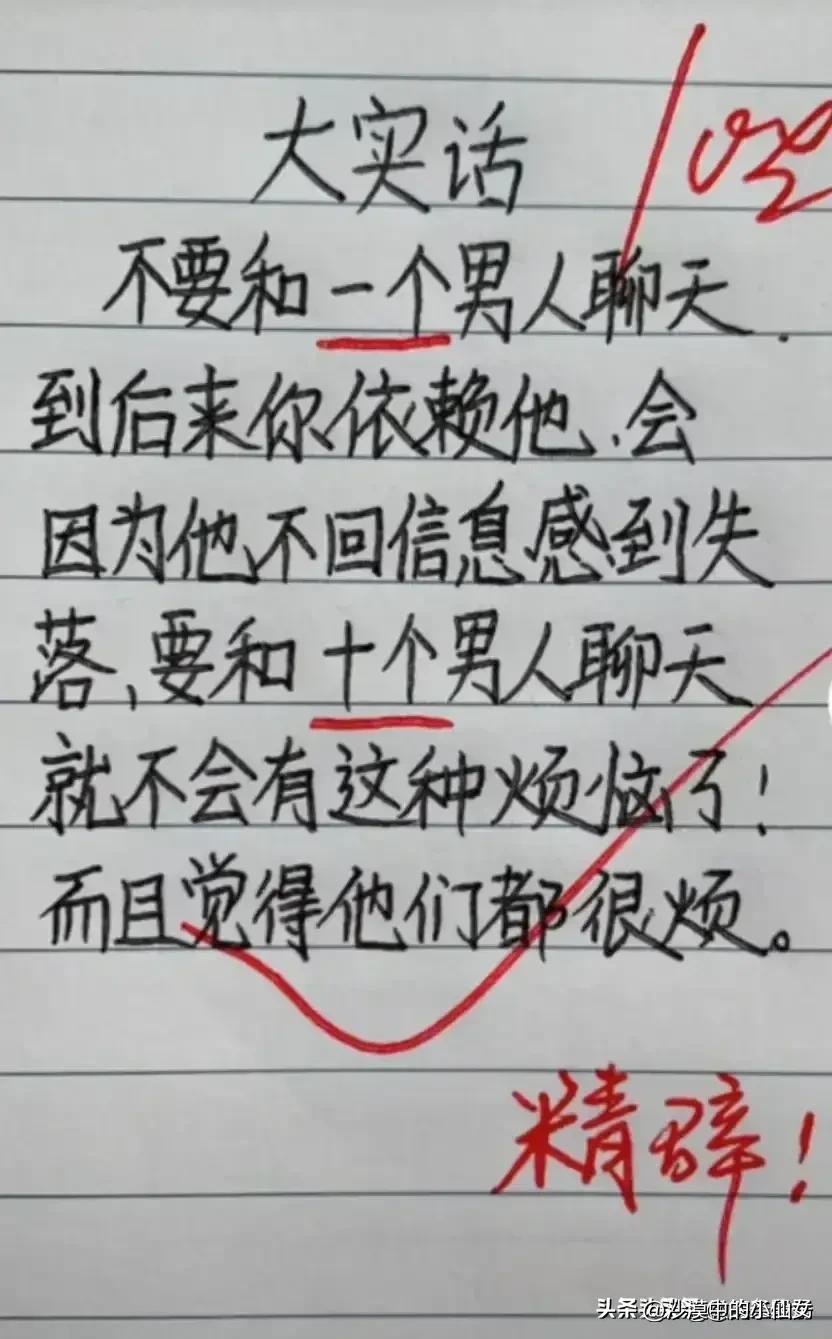 大实话
不要和一个男人聊天.
到后来你依赖他,会
因为他不回信息感到失
落,要和十个男人聊天
就不会有这种烦恼了!
而且觉得他们都很烦。
精辟!